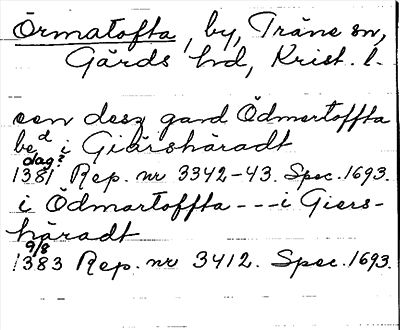 Örmatofta, by, Träne sn,
Gärds hd, Krist. l.
een desz gaard Ödmertoffta
bed i Giärshäradt
dag?
1381 Rep. nr 3342-43. Spec. 1693.
i Ödmartoffta --- i Giers-
häradt
9/8
1383 Rep. nr 3412. Spec. 1693.